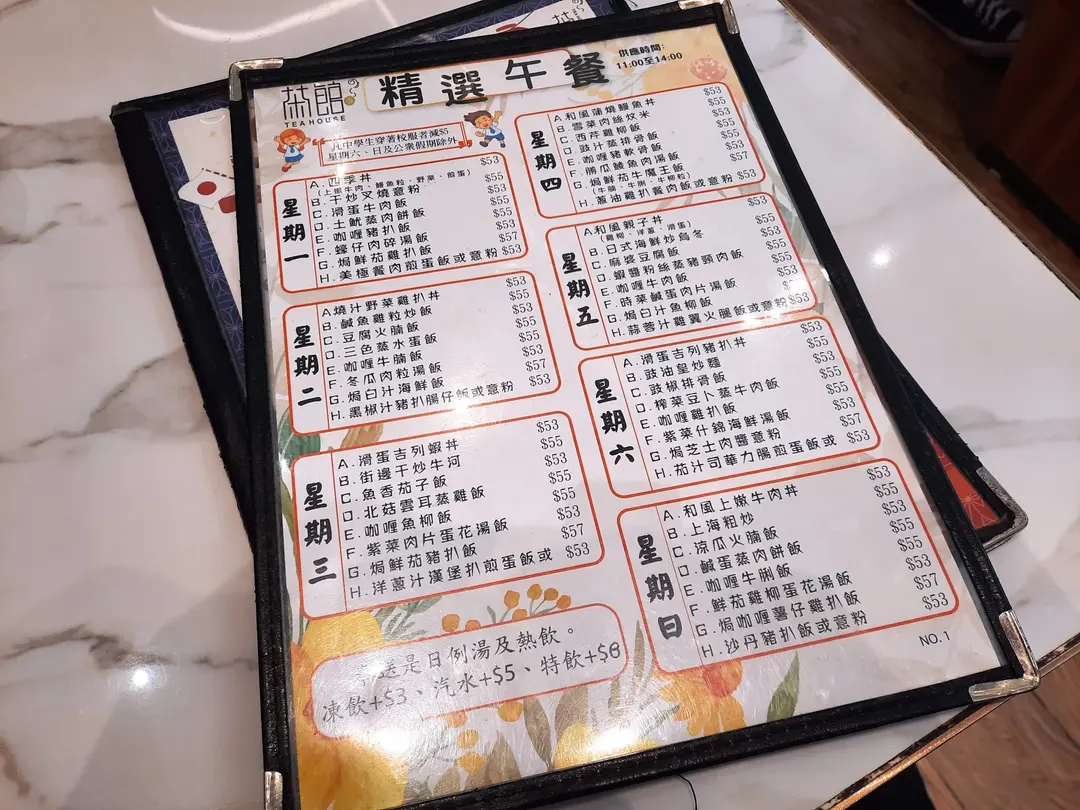 茶館
TEA HOUSE
精選午餐
供應時間:
11:00至14:00
凡中學生穿著校服者減$5
星期六、日及公衆假期除外
星期一
A. 四季丼 $53
(上嫩牛肉, 鰻魚粒, 野菜, 煎蛋)
B. 干炒叉燒意粉 $55
C. 滑蛋牛肉飯 $53
D. 土魷蒸肉餅飯 $55
E. 咖喱豬扒飯 $55
F. 蠔仔肉碎湯飯 $53
G. 焗鮮茄雞扒飯 $57
H. 美極餐肉煎蛋飯或意粉 $53
星期二
A 燒汁野菜雞扒丼 $53
B. 鹹魚雞粒炒飯 $55
C. 豆腐火腩飯 $53
D. 三色蒸水蛋飯 $55
E. 咖喱牛腩飯 $55
F. 冬瓜肉粒湯飯 $53
G. 焗白汁海鮮飯 $57
H. 黑椒汁豬扒腸仔飯或意粉 $53
星期三
A. 滑蛋吉列蝦丼 $53
B. 街邊干炒牛河 $55
C. 魚香茄子飯 $53
D. 北菇雲耳蒸雞飯 $55
E. 咖喱魚柳飯 $55
F. 紫菜肉片蛋花湯飯 $53
G. 焗鮮茄豬扒飯 $57
H. 洋蔥汁漢堡扒煎蛋飯或 $53
星期四
A 和風蒲燒鰻魚丼 $53
B. 雪菜肉絲炆米 $55
C. 西芹雞柳飯 $53
D. 豉汁蒸排骨飯 $55
E. 咖喱豬軟骨飯 $55
F. 勝瓜鯪魚肉湯飯 $53
G. 焗鮮茄牛魔王飯 $57
(牛腩, 牛脷, 牛柳粒)
H. 蔥油雞扒餐肉飯或意粉 $53
星期五
A 和風親子丼 $53
(雞柳, 洋蔥, 滑蛋)
B. 日式海鮮炒烏冬 $55
C. 麻婆豆腐飯 $53
D. 蝦醬粉絲蒸豬頸肉飯 $55
E. 咖喱牛肉飯 $55
F. 時菜鹹蛋肉片湯飯 $53
G. 焗白汁魚柳飯 $57
H. 蒜蓉汁雞翼火腿飯或意粉 $53
星期六
A. 滑蛋吉列豬扒丼 $53
B. 豉油皇炒麵 $55
C. 豉椒排骨飯 $53
D. 榨菜豆卜蒸牛肉飯 $55
E. 咖喱雞扒飯 $55
F. 紫菜什錦海鮮湯飯 $53
G. 焗芝士肉醬意粉 $57
H. 茄汁司華力腸煎蛋飯或 $53
星期日
A. 和風上嫩牛肉丼 $53
B. 上海粗炒 $55
C. 涼瓜火腩飯 $53
D. 鹹蛋蒸肉餅飯 $55
E. 咖喱牛脷飯 $55
F. 鮮茄雞柳蛋花湯飯 $53
G. 焗咖喱薯仔雞扒飯 $57
H. 沙丹豬扒飯或意粉 $53
送是日例湯及熱飲。
凍飲+$3、汽水+$5、特飲+$8
NO.1